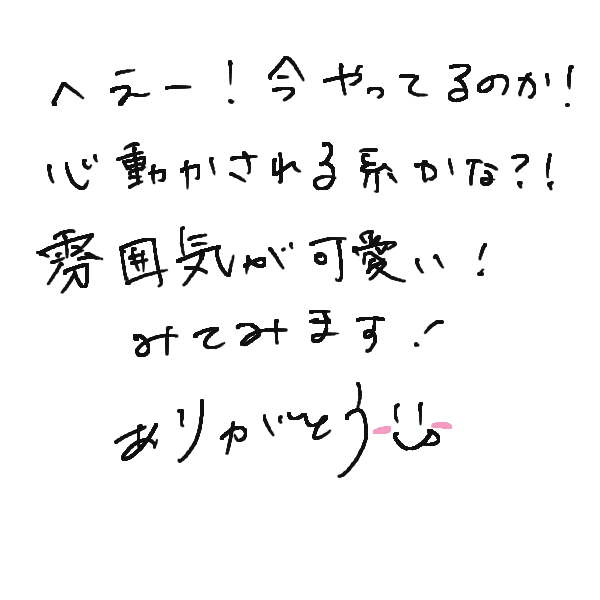 へえー！今やってるのか！
心動かされる系かな？！
雰囲気が可愛い！
みてみます！
ありがとう